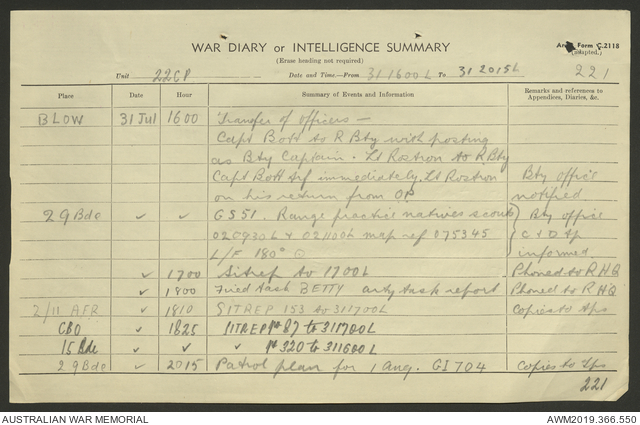 WAR DIARY or INTELLIGENCE SUMMARY
Army Form C.2118
(Erase heading not required)
(adapted.)
Unit 22CP Date and Time.—From 31 1600L To 31 2015L 221
Place Date Hour Summary of Events and Information Remarks and references to Appendices, Diaries, &c.
BLOW 31 Jul 1600 Transfer of officers —
Capt Bott to R Bty with posting
as Bty Captain. Lt Rostron to R Bty
Capt Bott trf immediately. Lt Rostron Bty office
on his return from OP notified
29 Bde ✓ ✓ GS51. Range practice natives scouts Bty office
020930L & 021100L map ref 075345 C & D Tp
L/F 180° informed
✓ 1700 Sitrep to 1700L Phoned to RHQ
✓ 1800 Fired task BETTY arty task report Phoned to RHQ
2/11 AFR ✓ 1810 SITREP 153 to 311700L Copies to tps
CBO ✓ 1825 SITREP No 87 to 311700L
15 Bde ✓ ✓ ✓ No 320 to 311600L
29 Bde ✓ 2015 Patrol plan for 1 Aug. GI704 Copies to Tps
221
AUSTRALIAN WAR MEMORIAL AWM2019.366.550